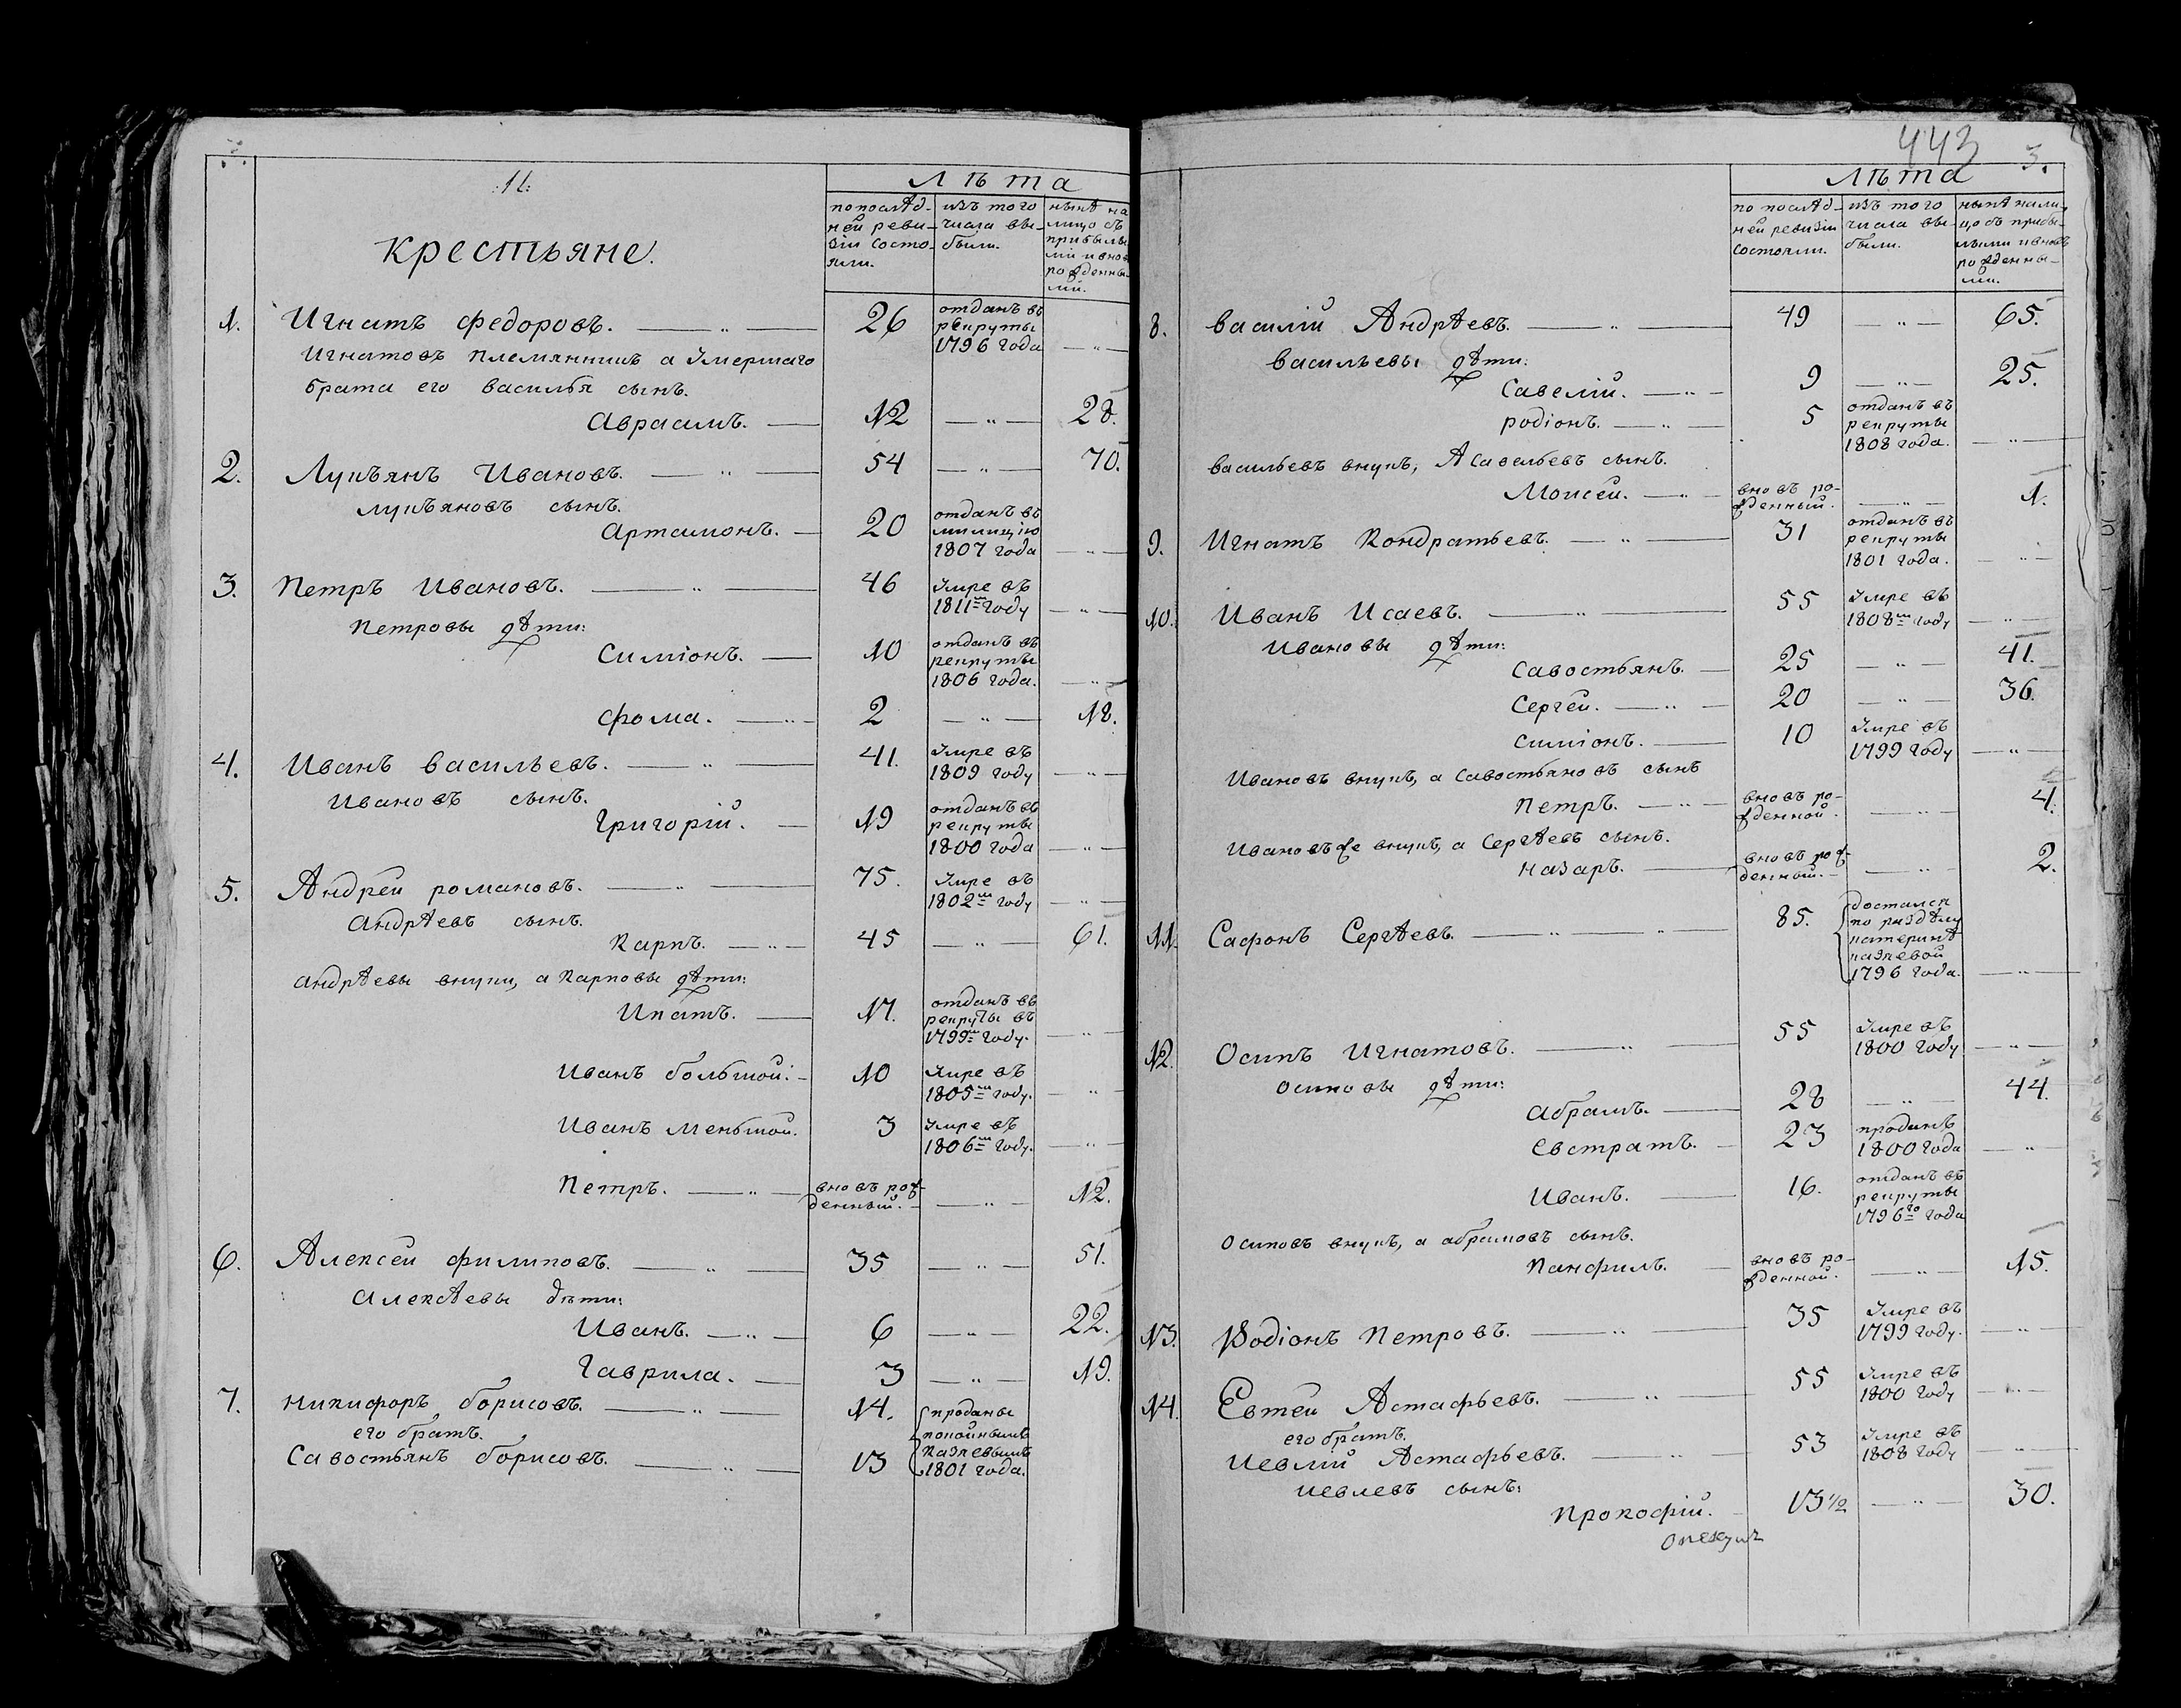 :11:
Лѣта
по послѣд-
ней реви-
зіи состо-
яли.
изъ того
числа вы-
были.
нынѣ на
лицо съ
прибылы
ми и внов
рожденны-
ми.
крестьяне.
1. Игнатъ Федоровъ. 26 отданъ въ
рекруты
1796 года
Игнатовъ племянникъ а Умершаго
брата его Василья сынъ.
Авраамъ. 12 28.
2. Лукьянъ Ивановъ. 54 70.
Лукьяновъ сынъ.
Артамонъ. 20 отданъ въ
милицію
1807 года
3. Петръ Ивановъ. 46 Умре въ
1811м году
Петровы дѣти:
Симіонъ. 10 отданъ въ
рекруты
1806 года.
Фома. 2 18.
4. Иванъ Васильевъ. 41. Умре въ
1809 году
Ивановъ сынъ.
Григорій. 19 отданъ въ
рекруты
1800 года
5. Андрей Романовъ. 75. Умре въ
1802м году
Андрѣевъ сынъ.
Карпъ. 45 61.
Андрѣевы внуки, а Карповы дѣти:
Ипатъ. 17. отданъ въ
рекруты въ
1799м году.
Иванъ большой. 10 Умре въ
1805м году.
Иванъ Меньшой. 3 Умре въ
1806м году.
Петръ. вновъ рож-
денный. 12.
6. Алексей Филиповъ. 35 51.
Алексѣевы дѣти:
Иванъ. 6 22.
Гаврила. 3 19.
7. Никифоръ Борисовъ. 14. проданы
покойнымъ
Казневымъ
1801 года.
его братъ.
Савостьянъ Борисовъ. 13
443
3.
Лѣта
по послѣд-
ней ревизіи
состояли.
изъ того
числа вы-
были.
нынѣ нали-
цо съ прибы-
лыми и вновь
рожденны-
ми.
8. Василій Андрѣевъ. 49 65.
Васильевы дѣти:
Савелій. 9 25.
Родіонъ. 5 отданъ въ
рекруты
1808 года.
Васильевъ внукъ, А Савельевъ сынъ.
Моисей. вновъ ро-
жденный. 1.
9. Игнатъ Кондратьевъ. 31 отданъ въ
рекруты
1801 года.
10. Иванъ Исаевъ. 55 Умре въ
1808м году
Ивановы дѣти:
Савостьянъ. 25 41.
Сергей. 20 36.
Симіонъ. 10 Умре въ
1799 году
Ивановъ внукъ, а Савостьяновъ сынъ
Петръ. вновъ ро-
жденной. 4.
Ивановъ же внукъ, а Сергѣевъ сынъ.
Назаръ. вновъ рож-
денный. 2.
11. Сафонъ Сергѣевъ. 85. достался
по раздѣлу
катеринѣ
казневой
1796 года.
12. Осипъ Игнатовъ. 55 Умре въ
1800 году
Осиповы дѣти:
Абрамъ. 28 44.
Евстратъ. 23 проданъ
1800 года
Иванъ. 16. отданъ въ
рекруты
1796го года
Осиповъ внукъ, а абрамовъ сынъ.
Панфилъ. вновъ ро-
жденной. 15.
13. Родіонъ Петровъ. 35 Умре въ
1799 году.
14. Евтей Астафьевъ. 55 Умре въ
1800 году
его братъ.
Иевлий Астафьевъ. 53 Умре въ
1808 году
Иевлевъ сынъ:
Прокофій. 13 1/2 30.
Опекунъ